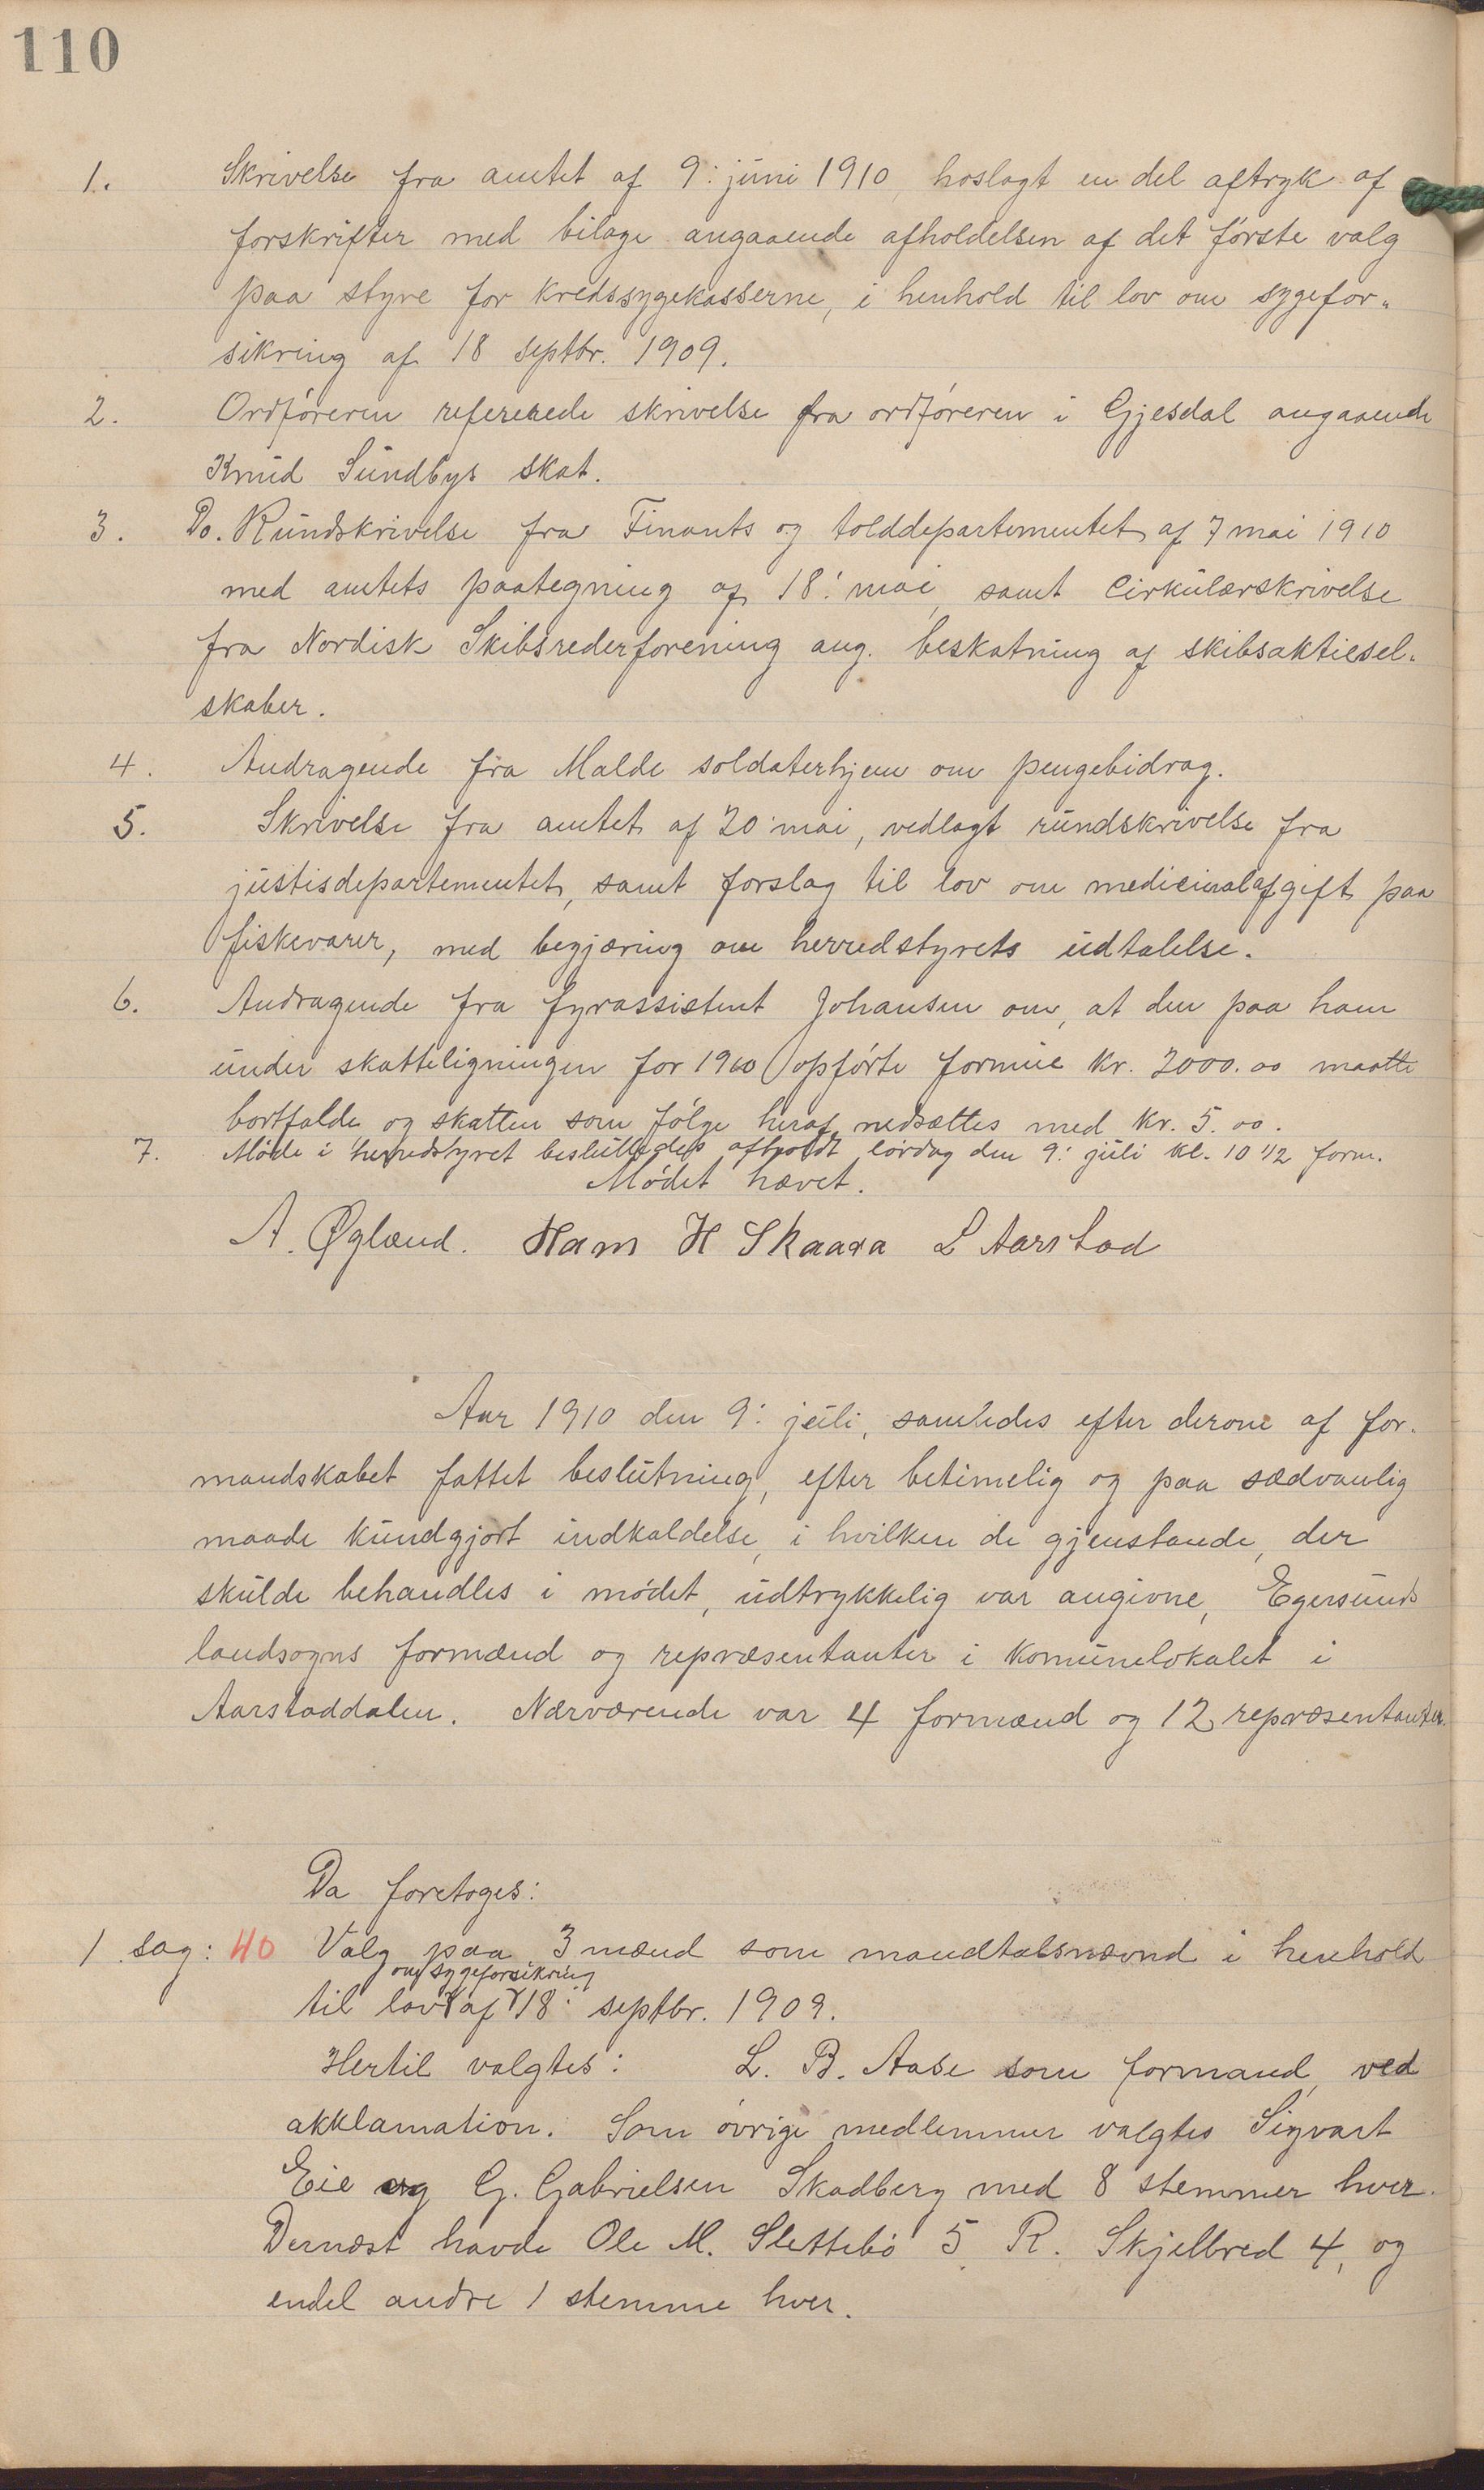 110
1. Skrivelse fra amtet af 9: juni 1910, hoslagt en del aftryk af
forskrifter med bilage angaaende afholdelsen af det første valg
paa styre for kredssygekasserne, i henhold til lov om sygefor-
sikring af 18 septbr. 1909.
2. Ordføreren refererede skrivelse fra ordføreren i Gjesdal angaaende
Knud Sundbys skat.
3. Do. Rundskrivelse fra Finants og tolddepartementet af 7 mai 1910
med amtets paategning af 18: mai, samt Cirkulærskrivelse
fra Nordisk Skibsrederforening ang. beskatning af skibsaktiesel-
skaber.
4. Andragende fra Malde soldaterhjem om pengebidrag.
5. Skrivelse fra amtet af 20 mai, vedlagt rundskrivelse fra
justisdepartementet, samt forslag til lov om medicinalafgift paa
fiskevarer, med begjæring om herredstyrets udtalelse.
6. Andragende fra fyrassistent Johansen om, at den paa ham
under skatteligningen for 1910 opførte formue kr. 2000.00 maatte
bortfalde og skatten som følge heraf nedsættes med kr. 5.00.
7. Møde i herredstyret besluttedes afholdt lørdag den 9: juli kl. 10 1/2 form.
Mødet hævet.
A. Øglænd. Ham H Skaara L Aarstad
Aar 1910 den 9: juli, samledes efter derom af for-
mandskabet fattet beslutning, efter betimelig og paa sædvanlig
maade kundgjort indkaldelse, i hvilken de gjenstande, der
skulde behandles i mødet, udtrykkelig var angivne, Egersunds
landsogns formænd og repræsentanter i komunelokalet i
Aarstaddalen. Nærværende var 4 formænd og 12 repræsentanter.
Da foretoges:
1 sag: 40 Valg paa 3 mænd som mandtalsnævnd i henhold
om sygeforsikring
til lov af 18: septbr. 1909.
Hertil valgtes: L. B. Aase som formand, ved
akklamation. Som øvrige medlemmer valgtes Sigvart
Eie og G. Gabrielsen Skadberg med 8 stemmer hver.
Dernæst havde Ole M. Slettebø 5, R. Skjelbred 4, og
endel andre 1 stemme hver.